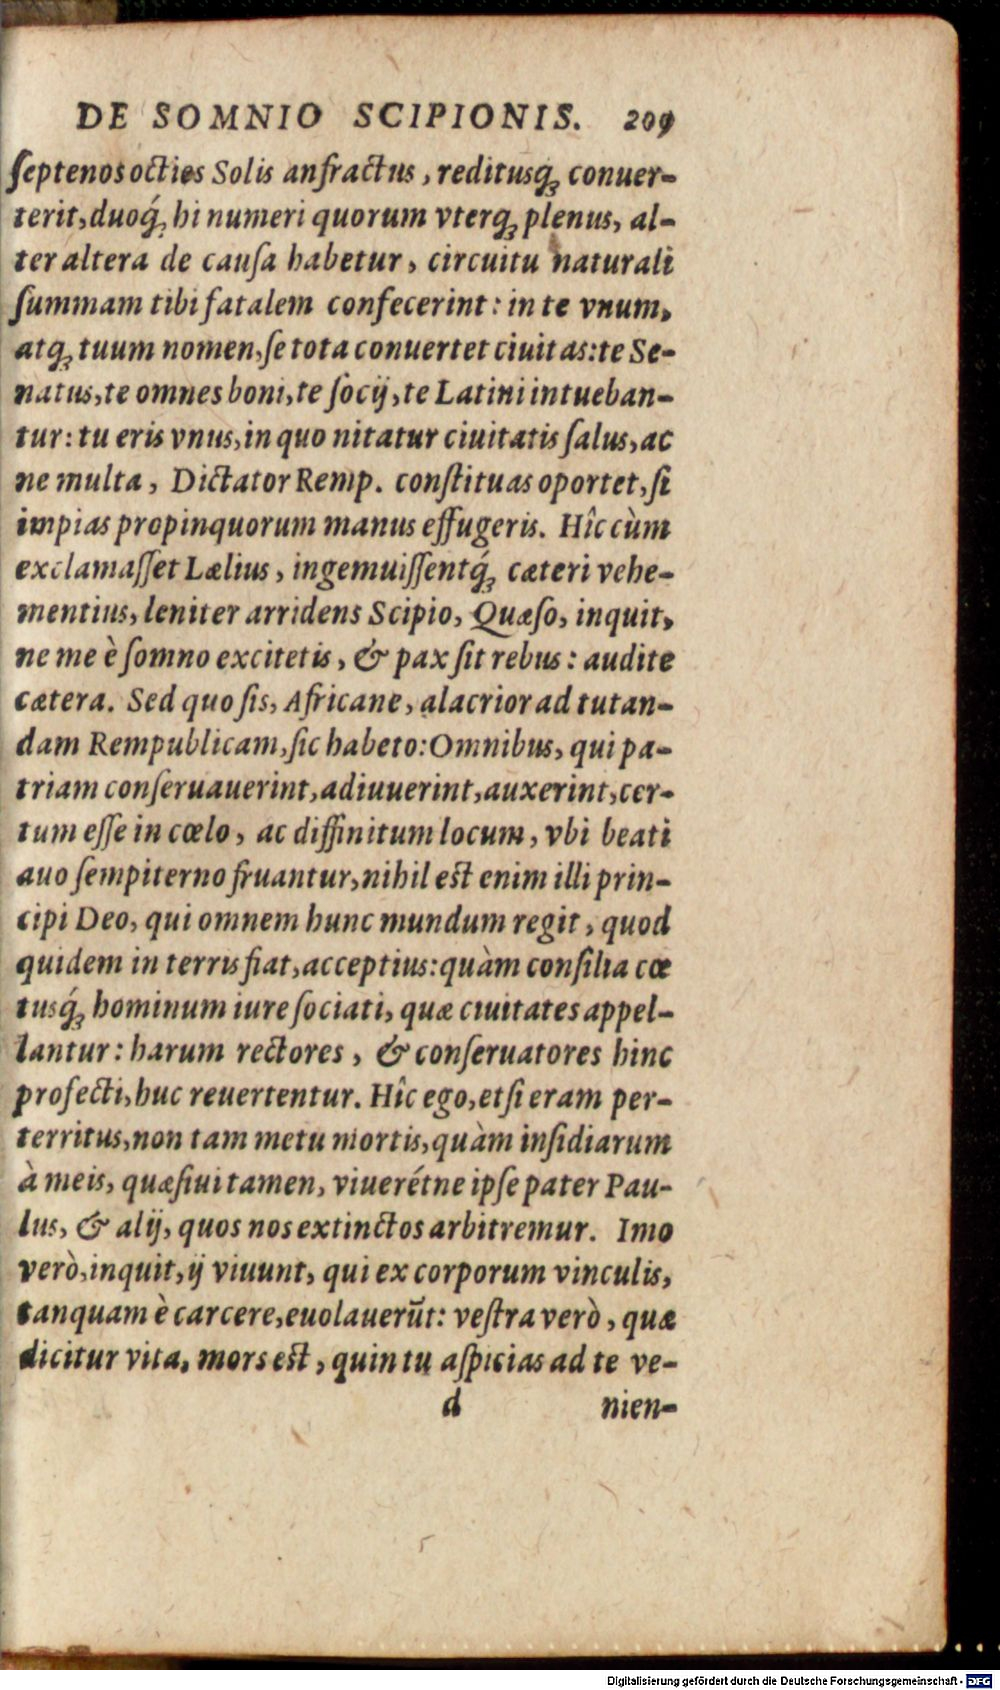 DE SOMNIO SCIPIONIS. 209
ſeptenos octies Solis anfractus, reditusq́; conuer-
terit, duoq́; hi numeri quorum vterq; plenus, al-
ter altera de cauſa habetur, circuitu naturali
ſummam tibi fatalem confecerint: in te vnum,
atq; tuum nomen, ſe tota conuertet ciuitas: te Se-
natus, te omnes boni, te ſocij, te Latini intueban-
tur: tu eris vnus, in quo nitatur ciuitatis ſalus, ac
ne multa, Dictator Remp. conſtituas oportet, ſi
impias propinquorum manus effugeris. Hîc cùm
exclamaſſet Lælius, ingemuiſſentq́; cæteri vehe-
mentius, leniter arridens Scipio, Quæſo, inquit,
ne me è ſomno excitetis, & pax ſit rebus: audite
cætera. Sed quo ſis, Africane, alacrior ad tutan-
dam Rempublicam, ſic habeto: Omnibus, qui pa-
triam conſeruauerint, adiuuerint, auxerint, cer-
tum eſſe in cœlo, ac diffinitum locum, vbi beati
æuo ſempiterno fruantur, nihil eſt enim illi prin-
cipi Deo, qui omnem hunc mundum regit, quod
quidem in terris fiat, acceptius: quàm conſilia cœ
tusq́; hominum iure ſociati, quæ ciuitates appel-
lantur: harum rectores, & conſeruatores hinc
profecti, huc reuertentur. Hîc ego, etſi eram per-
territus, non tam metu mortis, quàm inſidiarum
à meis, quæſiui tamen, viuerétne ipſe pater Pau-
lus, & alij, quos nos extinctos arbitremur. Imo
verò, inquit, ij viuunt, qui ex corporum vinculis,
tanquam è carcere, euolauerūt: veſtra verò, quæ
dicitur vita, mors eſt, quin tu aſpicias ad te ve-
d nien-
Digitalisierung gefördert durch die Deutsche Forschungsgemeinschaft - DFG